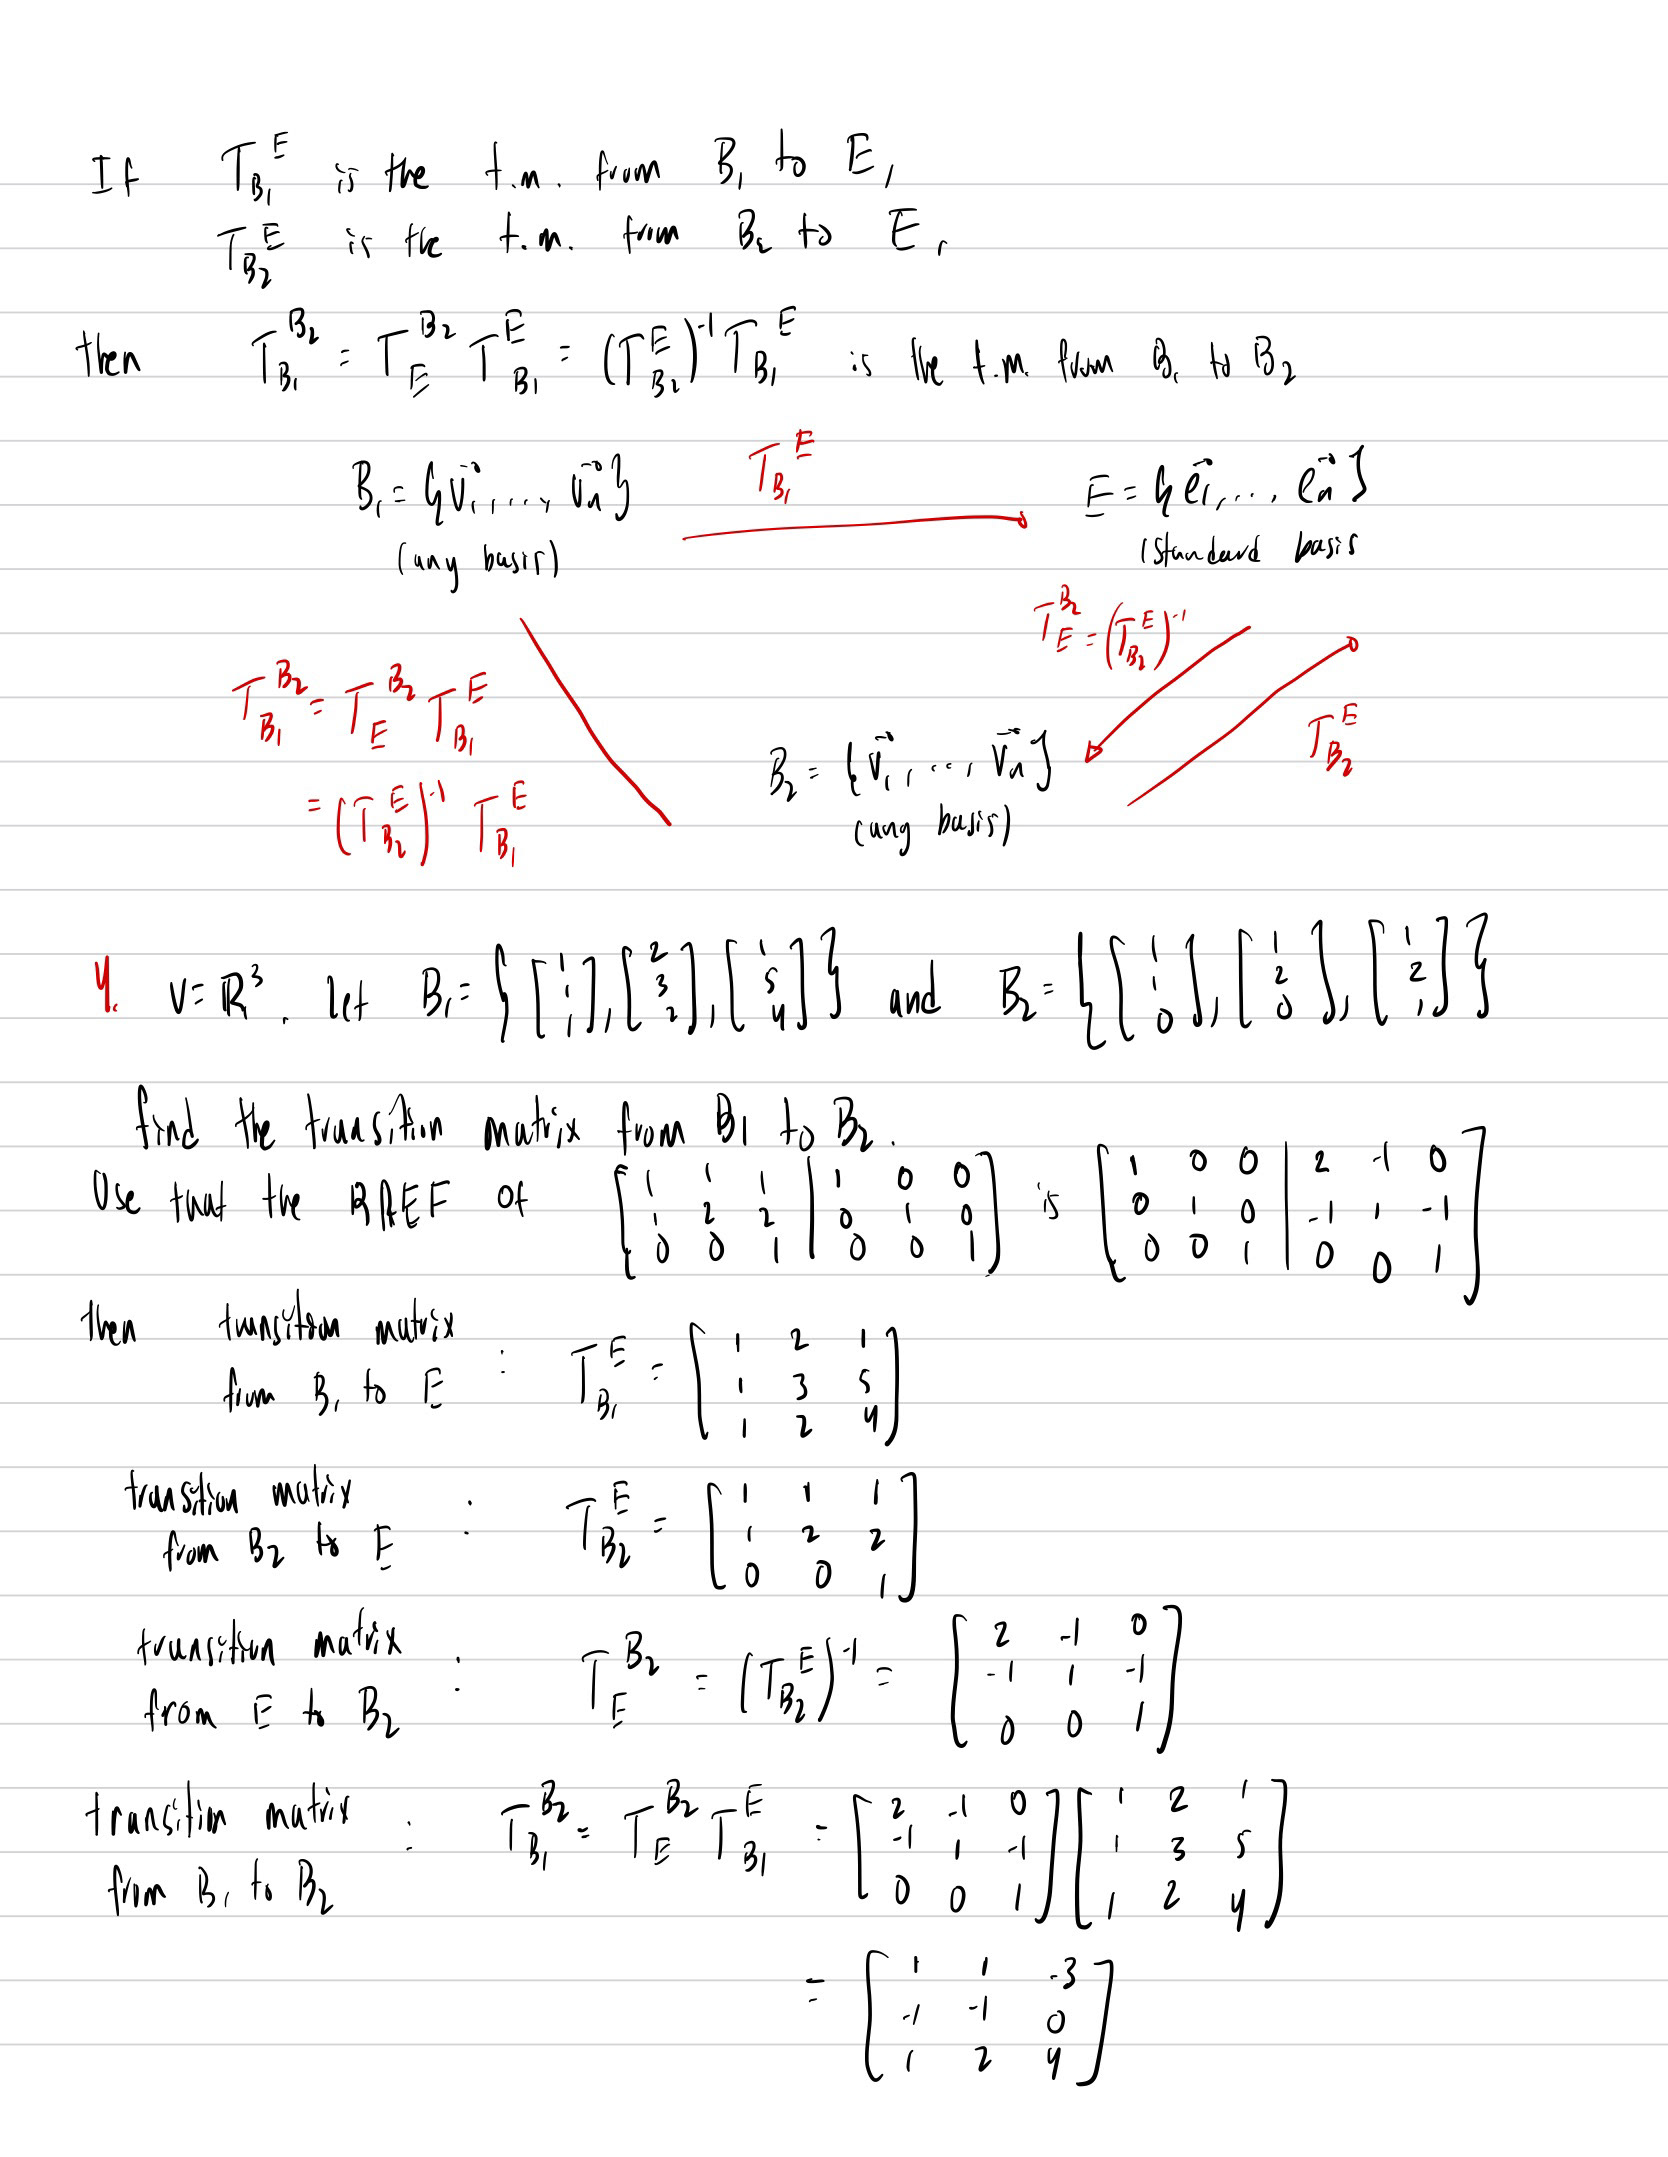 If T_{B_1}^E is the t.m. from B_1 to E,
T_{B_2}^E is the t.m. from B_2 to E,
then T_{B_1}^{B_2} = T_E^{B_2} T_{B_1}^E = (T_{B_2}^E)^{-1} T_{B_1}^E is the t.m. from B_1 to B_2
T_{B_1}^E
B_1 = {v⃗_1, ..., v⃗_n} E = {e⃗_1, ..., e⃗_n}
(any basis) (standard basis
T_E^{B_2} = (T_{B_2}^E)^{-1}
T_{B_1}^{B_2} = T_E^{B_2} T_{B_1}^E
T_{B_2}^E
B_2 = {v⃗_1, ..., v⃗_n}
= (T_{B_2}^E)^{-1} T_{B_1}^E
(any basis)
4. V = ℝ^3. let B_1 = {[1 1 1], [2 3 2], [1 5 4]} and B_2 = {[1 1 0], [1 2 0], [1 2 1]}
find the transition matrix from B_1 to B_2.
Use that the RREF of [1 1 1 | 1 0 0; 1 2 2 | 0 1 0; 0 0 1 | 0 0 1] is [1 0 0 | 2 -1 0; 0 1 0 | -1 1 -1; 0 0 1 | 0 0 1]
then transition matrix
from B_1 to E : T_{B_1}^E = [1 2 1; 1 3 5; 1 2 4]
transition matrix
from B_2 to E : T_{B_2}^E = [1 1 1; 1 2 2; 0 0 1]
transition matrix
from E to B_2 : T_E^{B_2} = (T_{B_2}^E)^{-1} = [2 -1 0; -1 1 -1; 0 0 1]
transition matrix
from B_1 to B_2 : T_{B_1}^{B_2} = T_E^{B_2} T_{B_1}^E = [2 -1 0; -1 1 -1; 0 0 1] [1 2 1; 1 3 5; 1 2 4]
= [1 1 -3; -1 -1 0; 1 2 4]